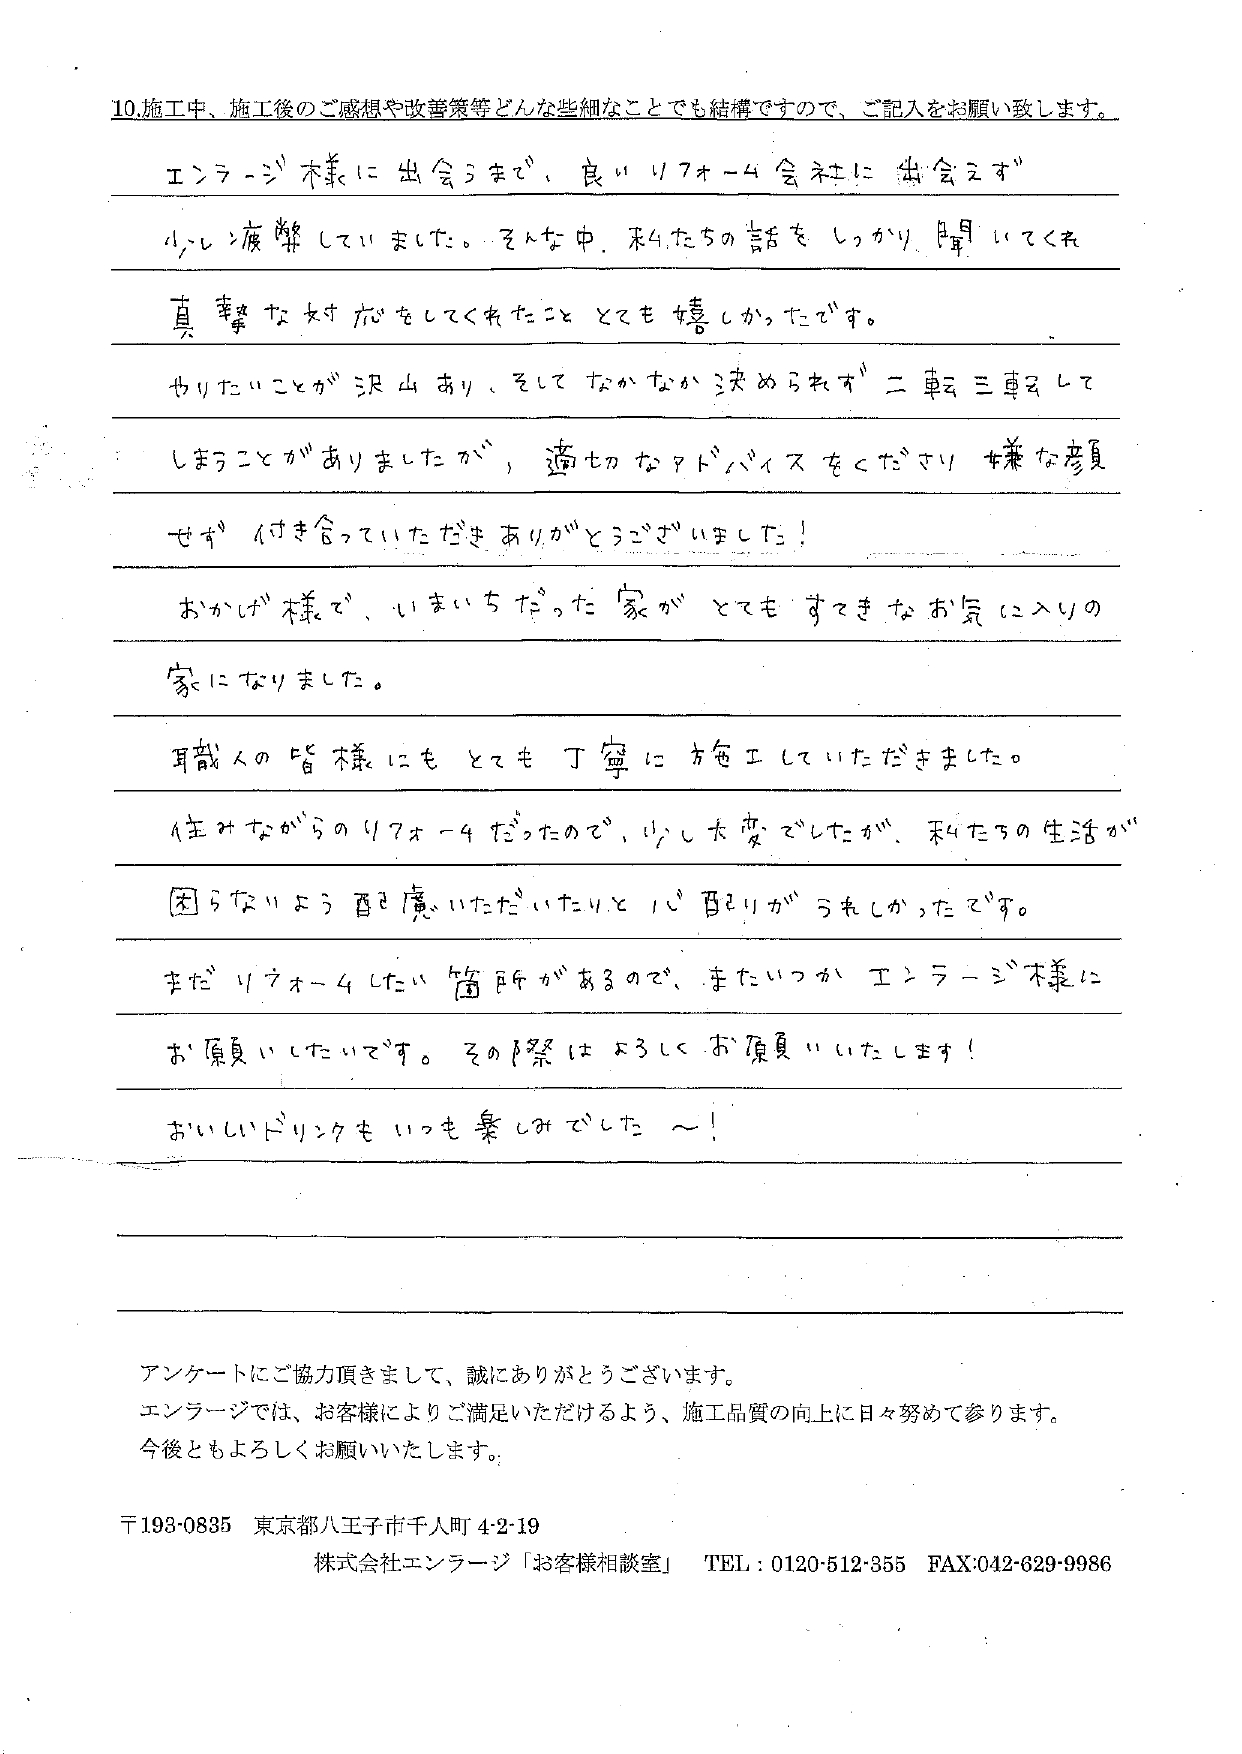 10.施工中、施工後のご感想や改善策等どんな些細なことでも結構ですので、ご記入をお願い致します。
エンラージ様に出会うまで、良いリフォーム会社に出会えず
少し疲弊していました。そんな中、私たちの話をしっかり聞いてくれ
真摯な対応をしてくれたこと とても嬉しかったです。
やりたいことが沢山あり、そしてなかなか決められず二転三転して
しまうことがありましたが、適切なアドバイスをくださり嫌な顔
せず 付き合っていただきありがとうございました!
おかげ様で、いまいちだった家が とても すてきなお気に入りの
家になりました。
職人の皆様にも とても 丁寧に 施工していただきました。
住みながらのリフォームだったので、少し大変でしたが、私たちの生活が
困らないよう配慮いただいたりと 心配りが うれしかったです。
まだ リフォームしたい箇所があるので、またいつか エンラージ様に
お願いしたいです。その際は よろしく お願いいたします!
おいしいドリンクも いつも楽しみでした 〜!
アンケートにご協力頂きまして、誠にありがとうございます。
エンラージでは、お客様によりご満足いただけるよう、施工品質の向上に日々努めて参ります。
今後ともよろしくお願いいたします。
〒193-0835 東京都八王子市千人町 4-2-19
株式会社エンラージ「お客様相談室」 TEL：0120-512-355 FAX:042-629-9986